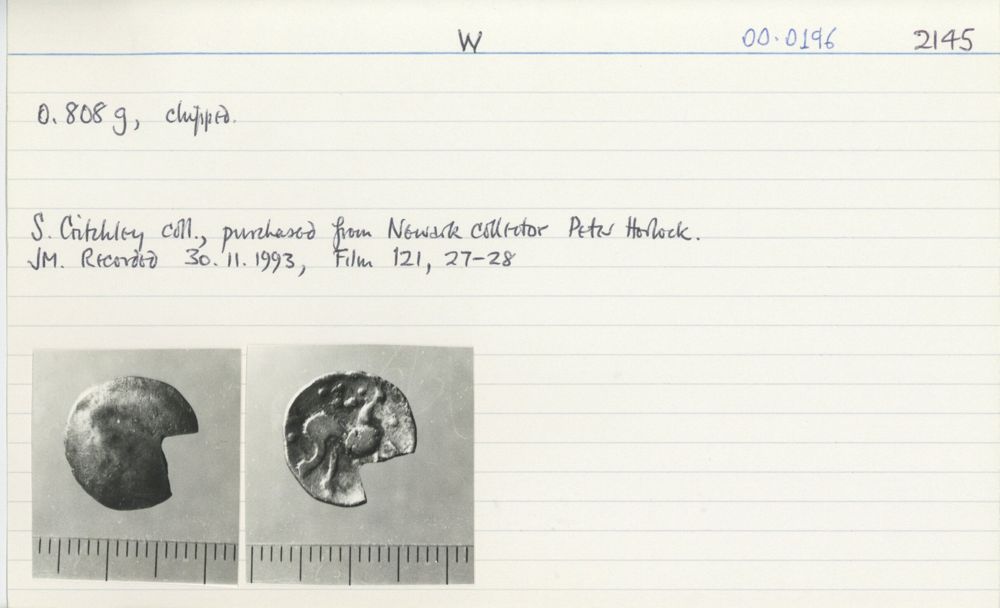 W 00.0196 2145
0.808 g, chipped.
S. Critchley coll., purchased from Newark collector Peter Horlock.
JM. Recorded 30.11.1993, Film 121, 27-28